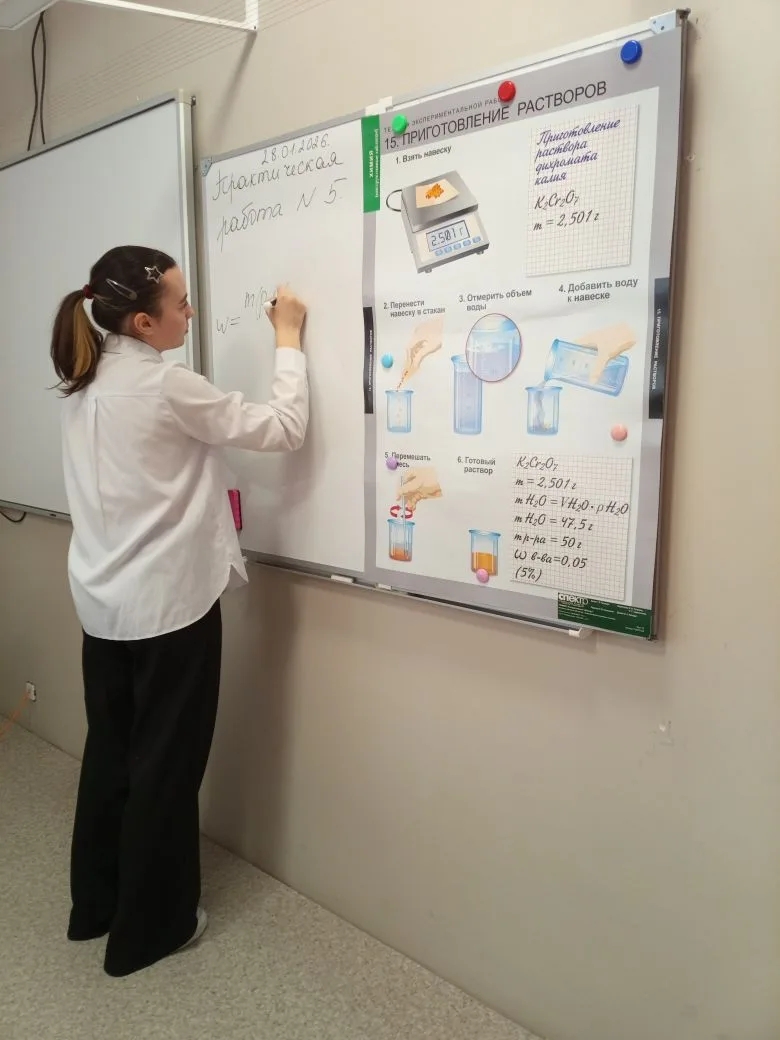 28.01.2026.
Практическая
работа N 5.
m(р
w=
ХИМИЯ
15. ПРИГОТОВЛЕНИЕ РАСТВОРОВ
1. Взять навеску
2.501 г
Приготовление
раствора
дихромата
калия
K₂Cr₂O₇
m = 2,501 г
2. Перенести
навеску в стакан
3. Отмерить объем
воды
4. Добавить воду
к навеске
15. ПРИГОТОВЛЕНИЕ РАСТВОРОВ
5. Перемешать
6. Готовый
раствор
K₂Cr₂O₇
m = 2,501 г
m H₂O = VH₂O · ρH₂O
m H₂O = 47,5 г
m р-ра = 50 г
ω в-ва=0,05
(5%)
СПЕКТР